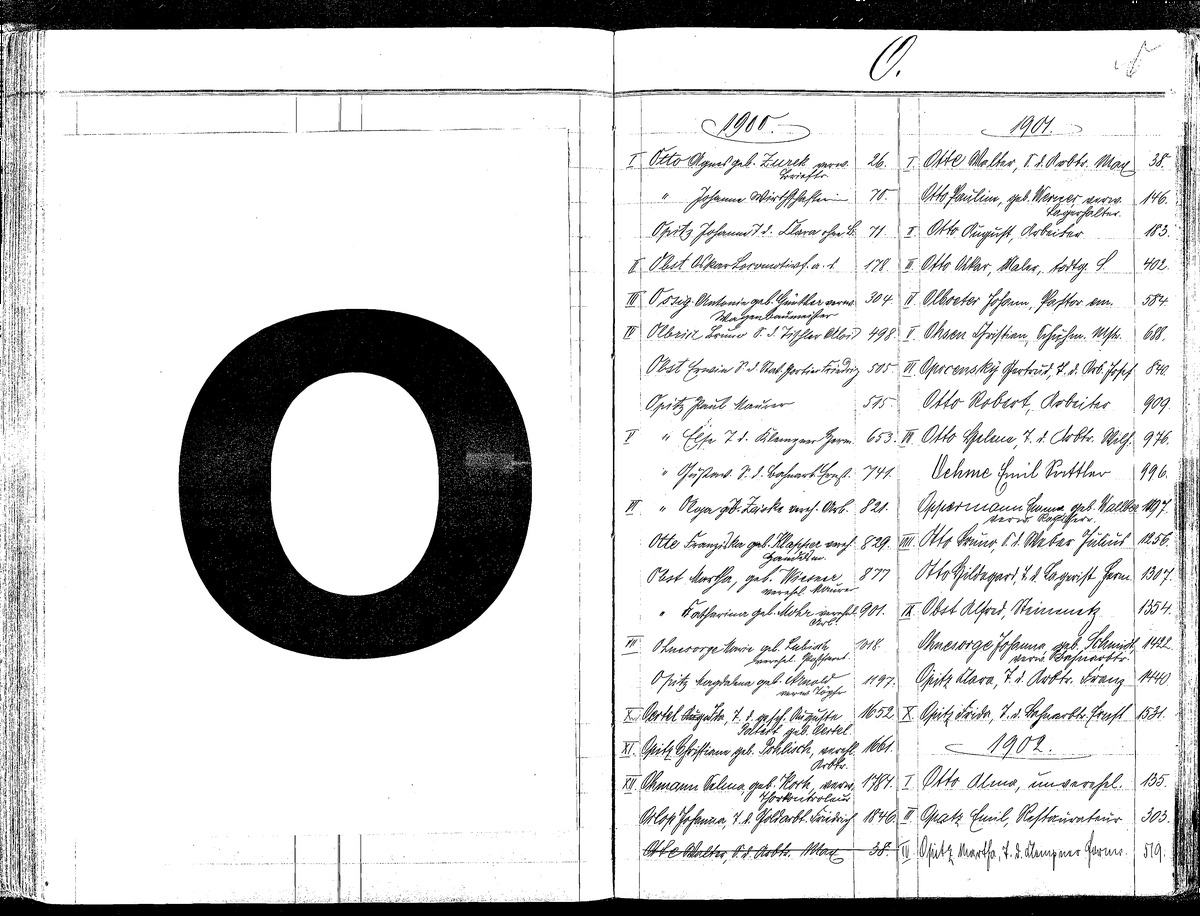 O
O.
1900.
I Otto Agnes geb. Zurek verw. 26.
Brieftr.
" Johanne Wirthschafterin 70.
Opitz Johanne T. d. Clara ohne B. 71
II Obst Oskar Locomotivf. a. D. 178
III Antonie geb. Günther verw. 304.
Wagenbaumeister
IV Bruno S. d. Tischler Alois 498.
Obst Erwin S. d. Stat. Portier Friedrich 505
Opitz Paul Maurer 515.
V " Else T. d. Klempner Herm. 653.
" Gustav S. d. Ernst. 741.
VI " Olga geb. verh. Arb. 821.
Otte Franziska geb. Klapper verh. 829.
Obst Martha, geb. Wiesner 877
verehel. Maurer
" Katharina geb. Mohr verehel. 901.
Arb.
VII Ohnesorge Marie geb. 1018.
verehel.
Opitz Magdalena geb. Arnold 1197.
verw. Töpfer
X. Oertel Augusta, T. d. gesch. Auguste 1652
geb. Oertel.
XI. Opitz Christiane geb. verehl. 1661.
Arbtr.
XII. Ohmann Selma geb. Kork, verw. 1784.
Thorkontroleur
Johanna, T. d. Friedrich 1846.
Otte Walter S. d. Arbtr. Max 38.
1901.
I. Otte Walter, S. d. Arbtr. Max 38.
Otto Pauline, geb. Werner, verw. 146.
Lagerhalter.
II. Otto August, Arbeiter 183.
III. Otto Oskar, Maler, todtg. S. 402.
IV Johann, Pastor em. 584.
V. Christian, Schuhm. Mstr. 688.
VI Gertrud, T. d. Arb. Josef 840.
Otto Robert, Arbeiter 909.
VII Otto Helene, T. d. Arbtr. Wilh. 976.
Oehme Emil Sattler 996.
Oppermann Emma geb. 1197.
verw.
VIII. Otto Bruno, S. d. Weber Julius 1256.
Otto Hildegard, T. d. Lagerist Herm. 1307.
IX Obst Alfred, Steinmetz 1354.
Ohnesorge Johanna, geb. Schmidt, 1422.
verw. Bahnarbtr.
Opitz Klara, T. d. Arbtr. Franz 1440
X. Opitz Frida, T. d. Bahnarbtr. Ernst 1531.
1902.
I Otto Alma, unverehel. 135.
III Emil, Restaurateur 303.
IV Opitz Martha, T. d. Klempner Herm. 519.